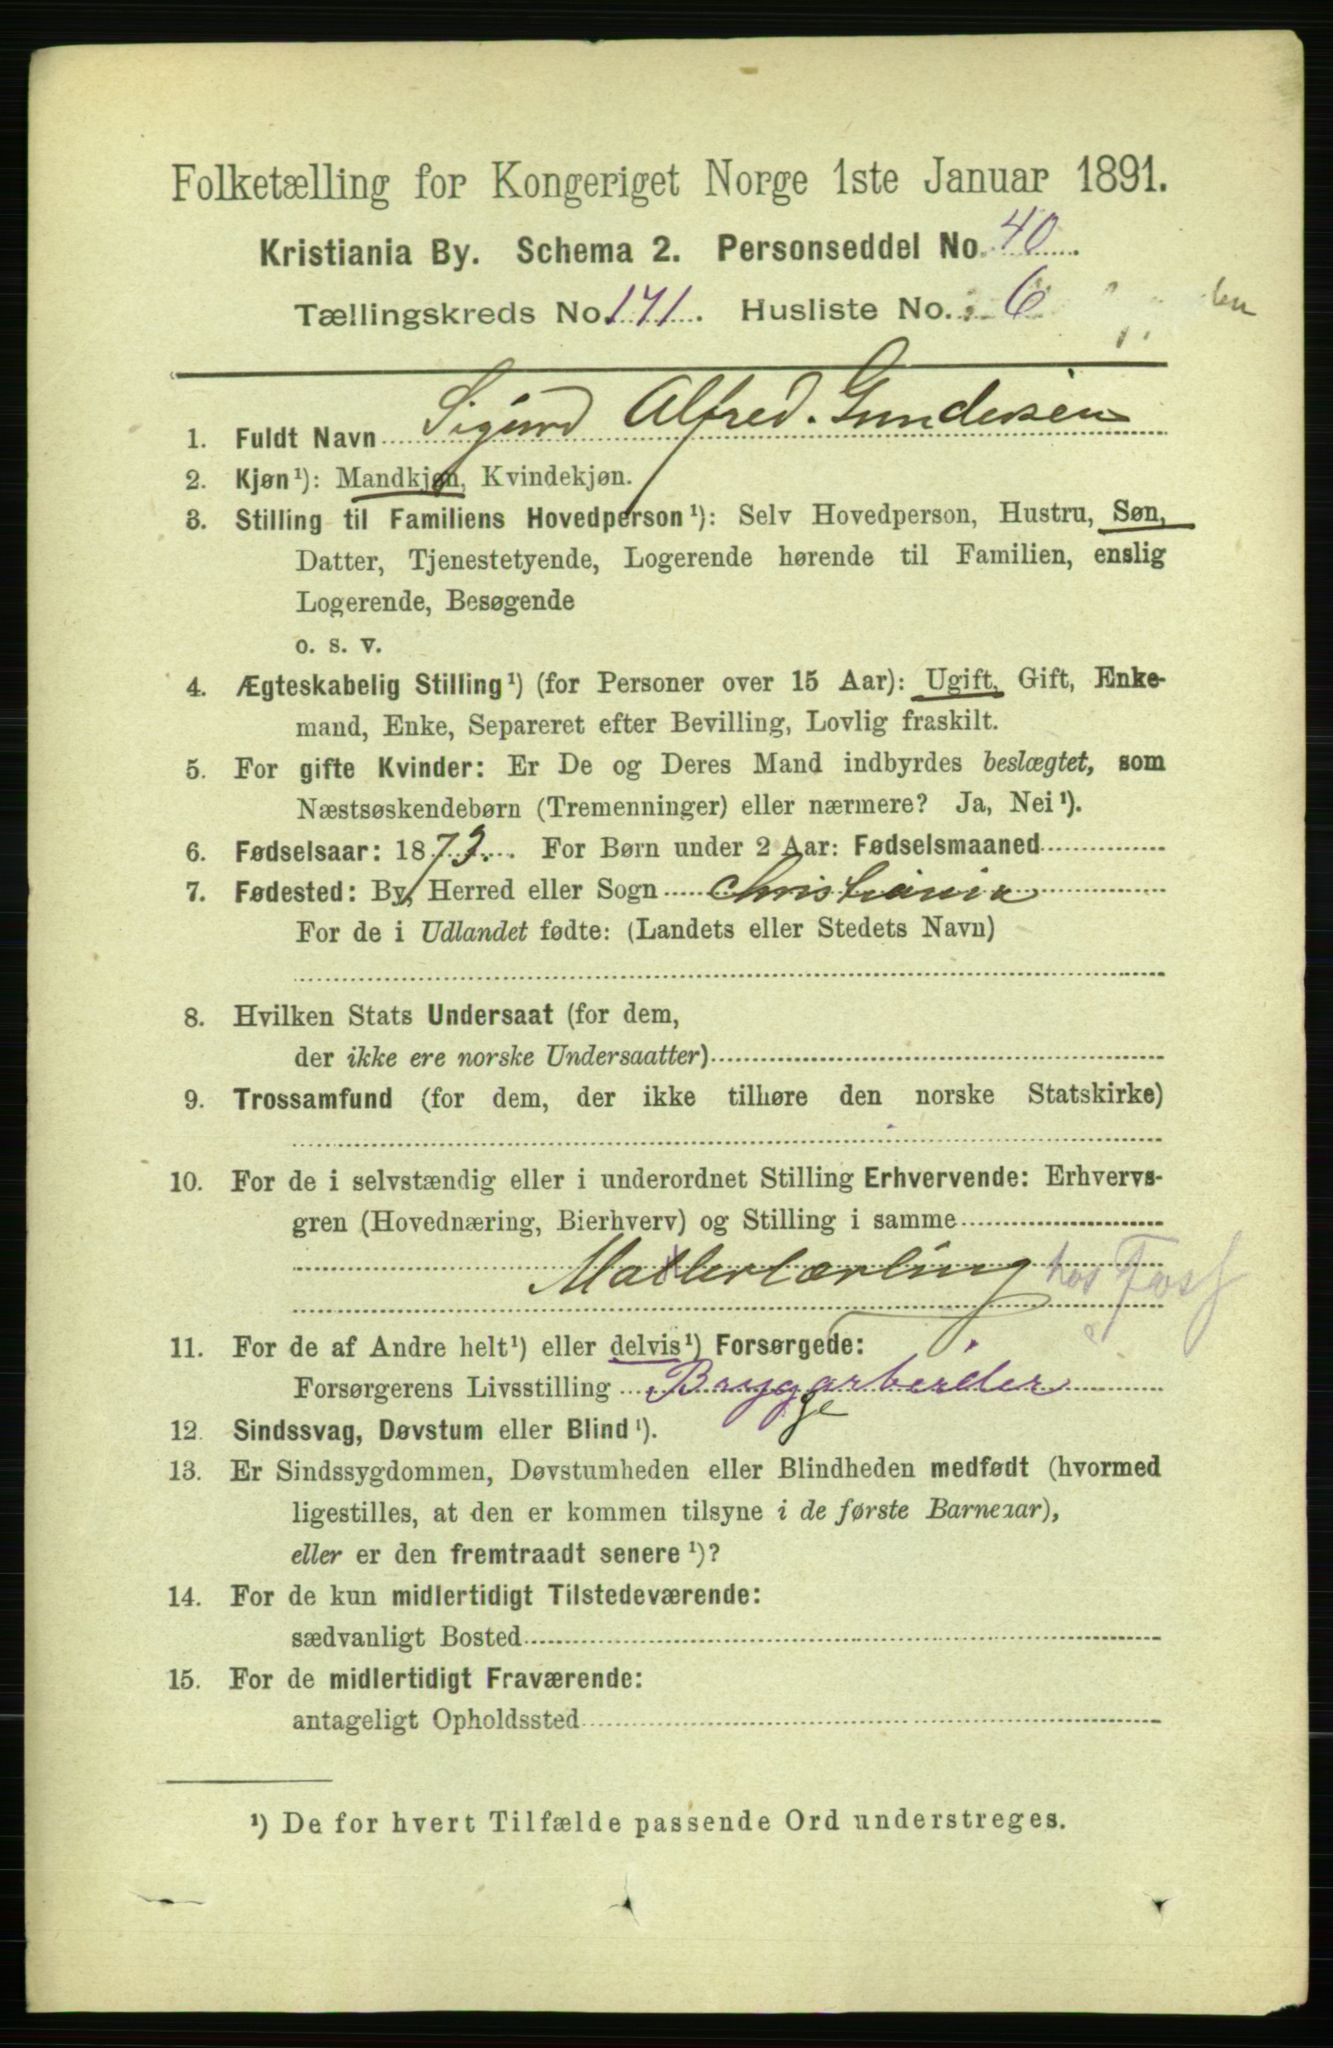 Folketælling for Kongeriget Norge 1ste Januar 1891.
Kristiania By. Schema 2. Personseddel No. 40
Tællingskreds No. 171. Husliste No. 6
1. Fuldt Navn Sigurd Alfred. Gundersen
2. Kjøn¹): Mandkjøn, Kvindekjøn.
3. Stilling til Familiens Hovedperson¹): Selv Hovedperson, Hustru, Søn,
Datter, Tjenestetyende, Logerende hørende til Familien, enslig
Logerende, Besøgende
o. s. v.
4. Ægteskabelig Stilling¹) (for Personer over 15 Aar): Ugift, Gift, Enke-
mand, Enke, Separeret efter Bevilling, Lovlig fraskilt.
5. For gifte Kvinder: Er De og Deres Mand indbyrdes beslægtet, som
Næstsøskendebørn (Tremenninger) eller nærmere? Ja, Nei¹).
6. Fødselsaar: 1873. For Børn under 2 Aar: Fødselsmaaned
7. Fødested: By, Herred eller Sogn Christiania
For de i Udlandet fødte: (Landets eller Stedets Navn)
8. Hvilken Stats Undersaat (for dem,
der ikke ere norske Undersaatter)
9. Trossamfund (for dem, der ikke tilhøre den norske Statskirke)
10. For de i selvstændig eller i underordnet Stilling Erhvervende: Erhvervs-
gren (Hovednæring, Bierhverv) og Stilling i samme
Malerlærling hos
11. For de af Andre helt¹) eller delvis¹) Forsørgede:
Forsørgerens Livsstilling Bryggarbeider
ge
12. Sindssvag, Døvstum eller Blind¹).
13. Er Sindssygdommen, Døvstumheden eller Blindheden medfødt (hvormed
ligestilles, at den er kommen tilsyne i de første Barneaar),
eller er den fremtraadt senere¹)?
14. For de kun midlertidigt Tilstedeværende:
sædvanligt Bosted
15. For de midlertidigt Fraværende:
antageligt Opholdssted
¹) De for hvert Tilfælde passende Ord understreges.